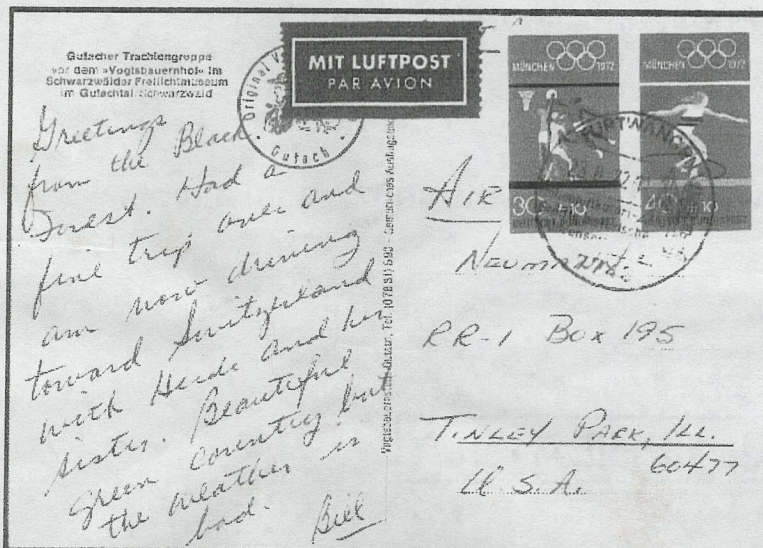 Gutacher Trachtengruppe
vor dem »Vogtsbauernhof« im
Schwarzwälder Freilichtmuseum
im Gutachtal/Schwarzwald
Original
Gutach
MIT LUFTPOST
PAR AVION
MÜNCHEN 1972
30+10
MÜNCHEN 1972
40+10
FURTWANGEN
Greetings
from the Black
Forest. Had a
fine trip over and
am now driving
toward Switzerland
with Heidi and her
sister. Beautiful
green country but
the weather is
bad. Bill
AIR
RR-1 Box 195
TINLEY PARK, ILL.
60477
U.S.A.